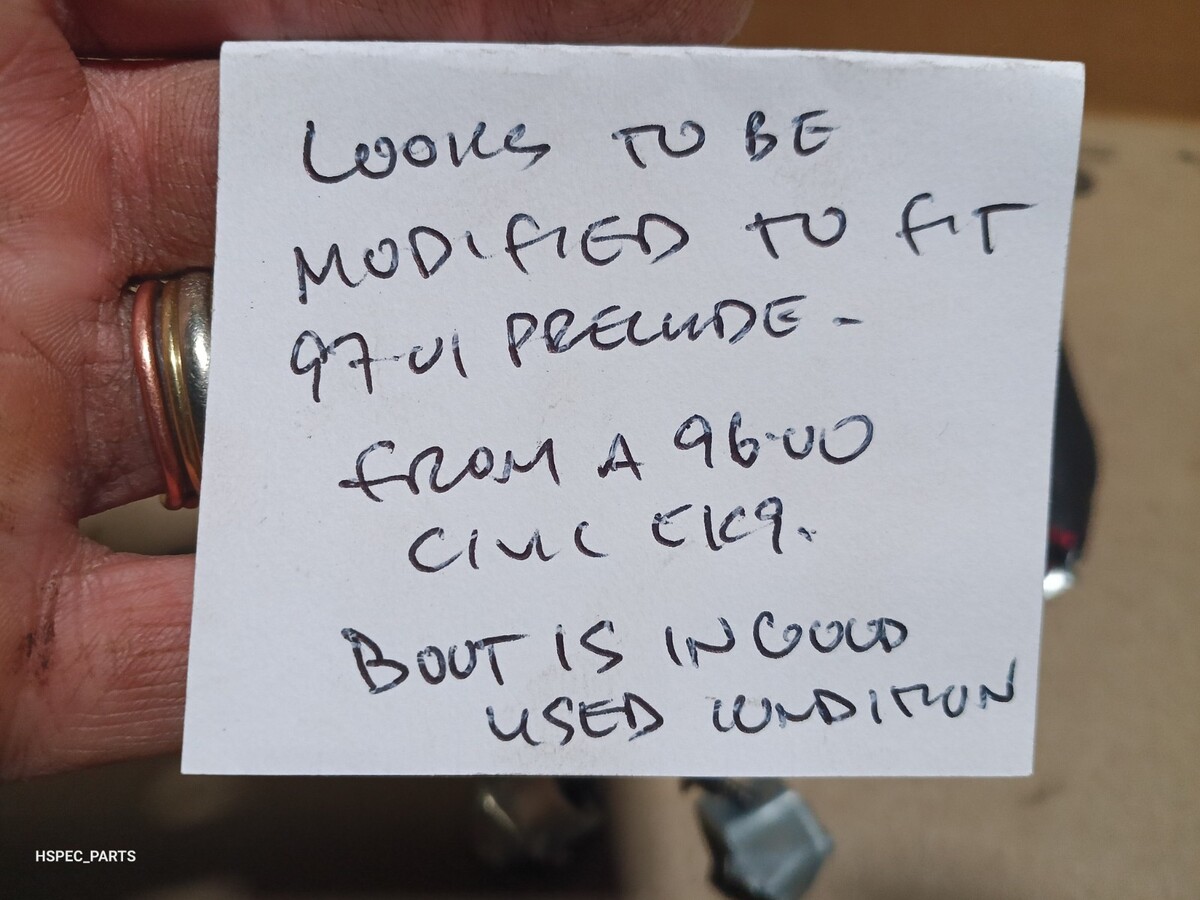 LOOKS TO BE
MODIFIED TO FIT
97-01 PRELUDE -
FROM A 96-00
CIVIC EK9.
BOOT IS IN GOOD
USED CONDITION
HSPEC_PARTS